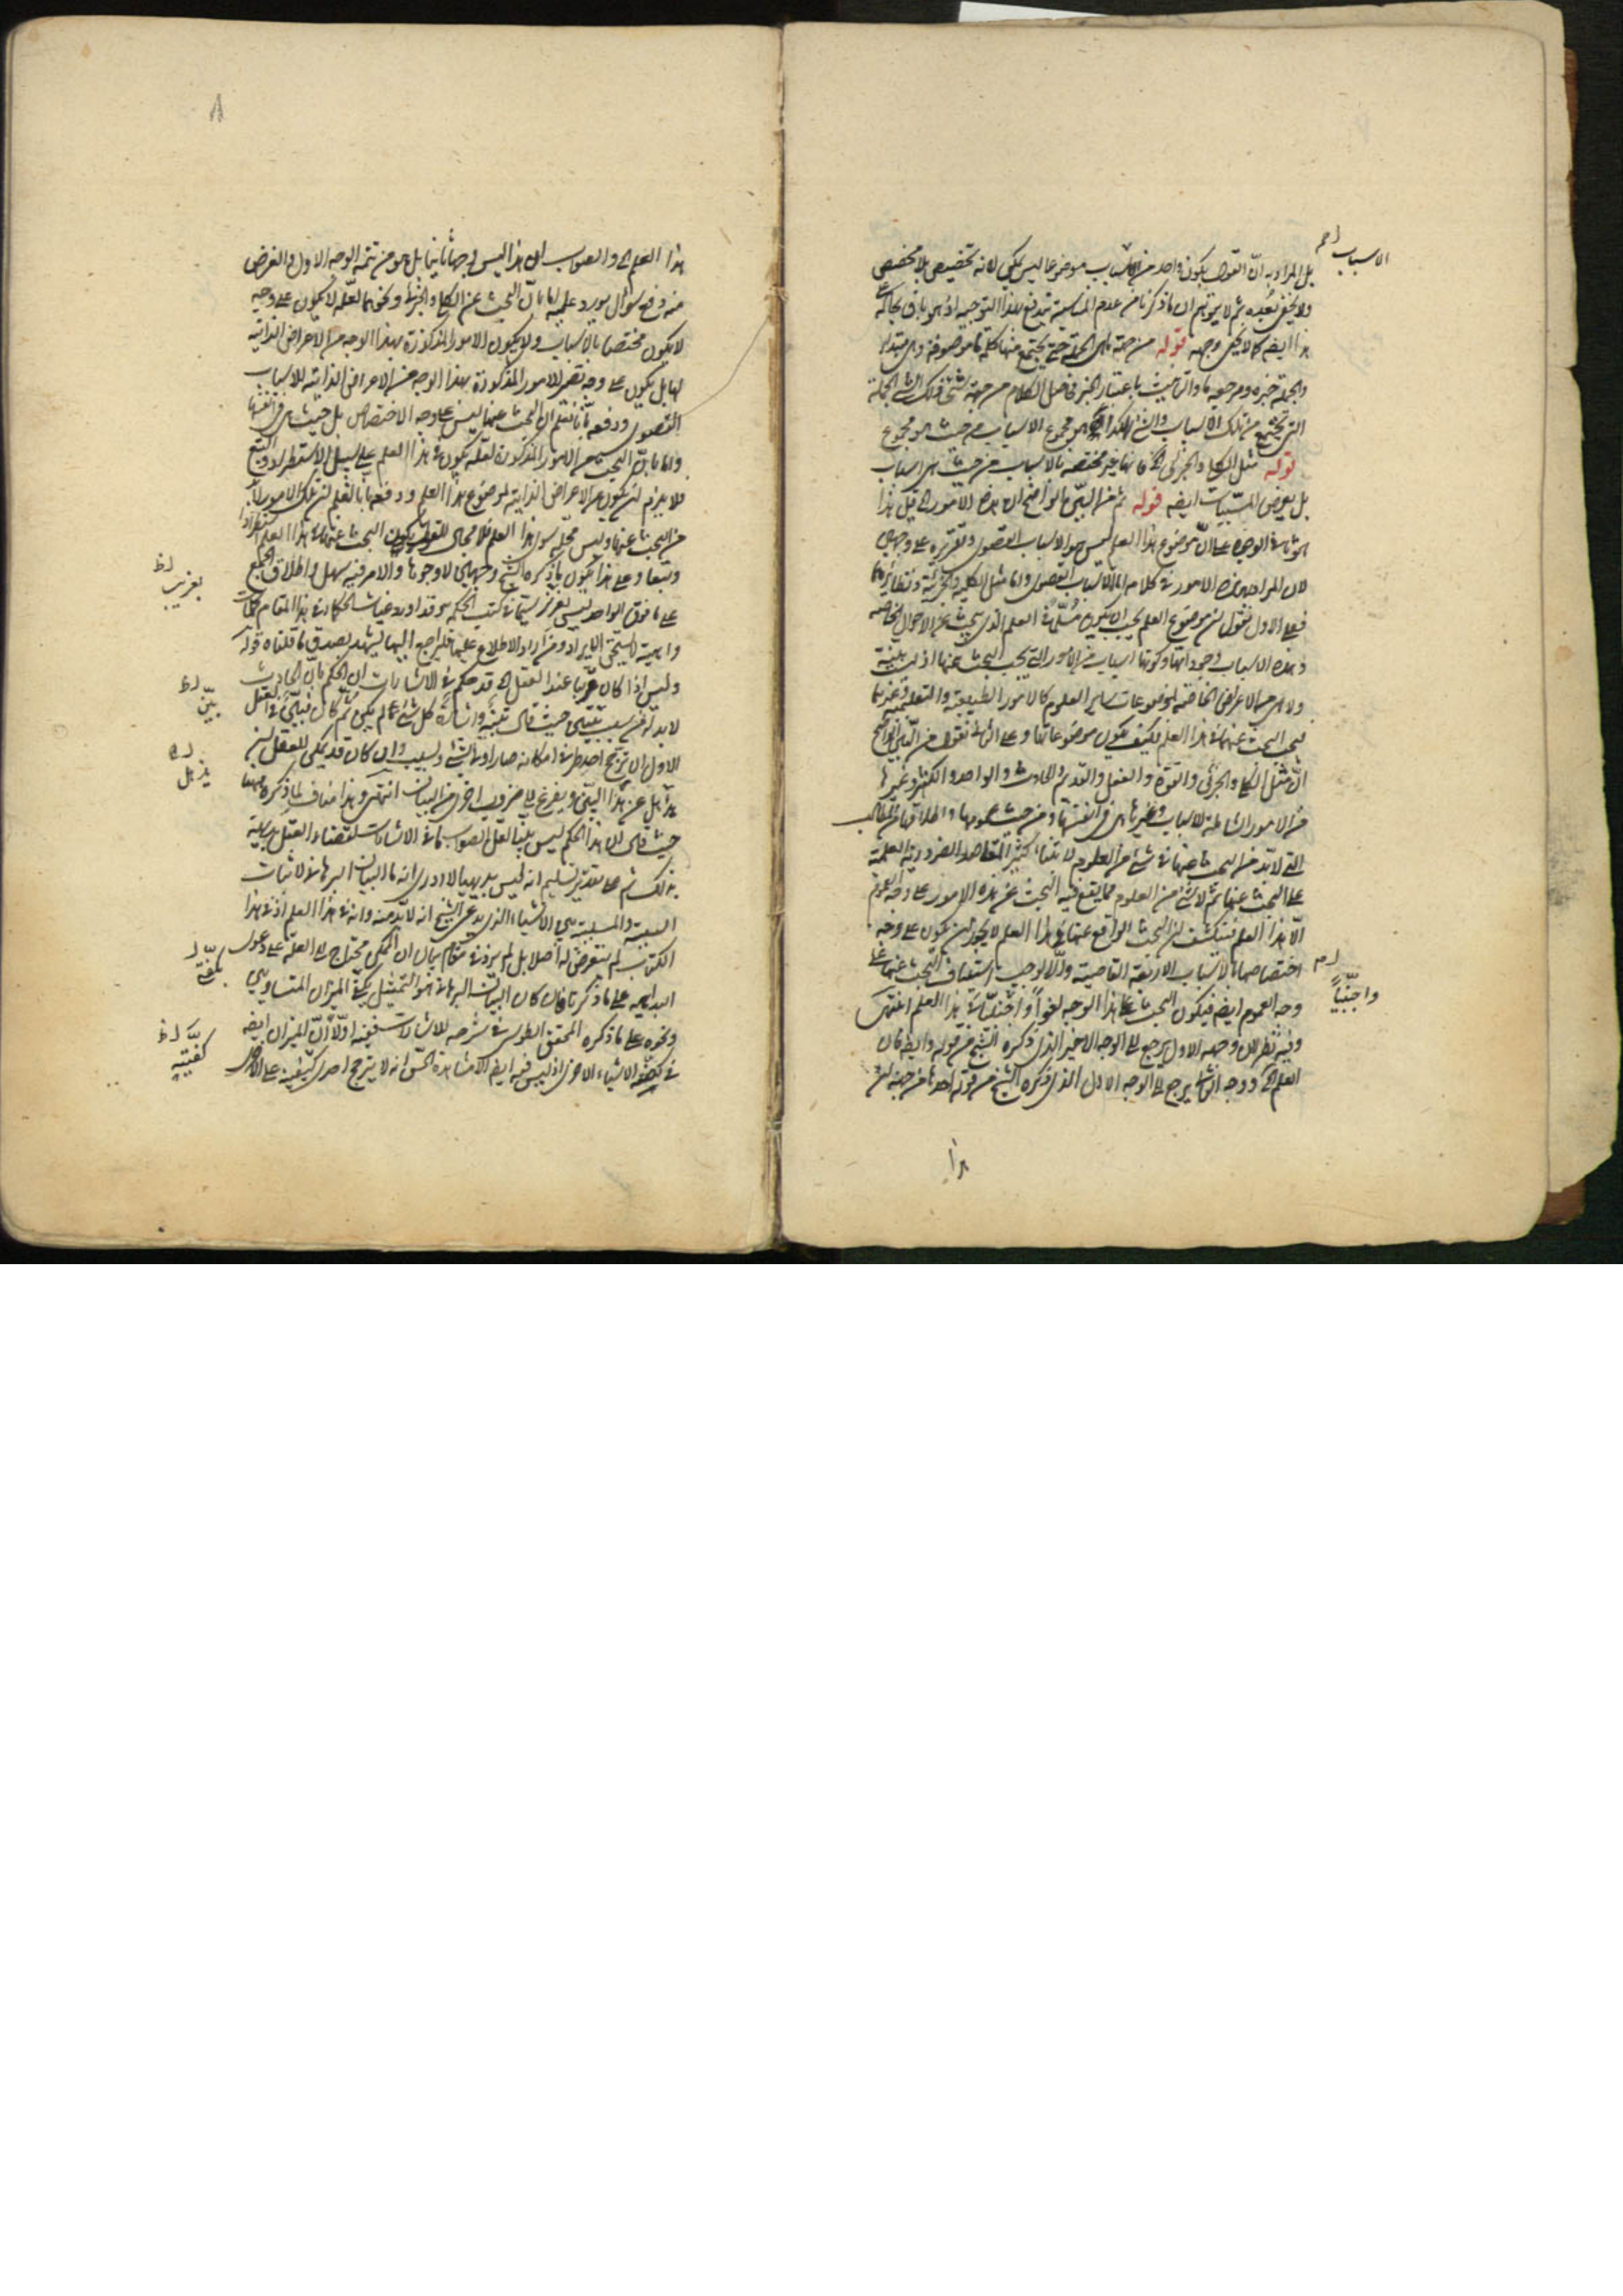 الاسباب
بل المراد به انّ القول بكون واحد من الاسباب موضوعا ليس بممكن لانه تخصيص بلا مخصص
ولا يخفى بُعده ثم لا يتوهم ان ما ذكرنا من عدم المناسبة تندفع بهذا التوجيه اذ هو باق بحاله على
هذا ايضا كما لا يخفى وجهه قوله من جهة ما هي الجملة حتى يجتمع منها كلمة ما موصوفة وهي مبتدأ
والجملة خبره ومرجعه ما والتأنيث باعتبار الخبر
التى تجتمع من تلك الاسباب والشيء هو مجموع الاسباب من حيث هو مجموع
قوله مثل الكلى والجزئى الخ فانها غير مختصة بالاسباب من حيث هى اسباب
بل يعرض المسببات ايضا قوله ثم من البيّن الواضح ان هذه الامور الخ قيل هذا
الوجوه على انّ موضوع هذا العلم ليس هو الاسباب القصوى وتقريره على وجهين
لان المراد بهذه الامور فى كلامه اما الاسباب القصوى واما مثل الكلية والجزئية ونظائرهما
فعلى الاول نقول ان موضوع العلم يجب ان يكون مسلّما فى العلم الذى يبحث عن الاحوال المختصة
وهذه الاسباب وجوداتها وكونها اسبابا من الامور التى يجب البحث عنها اذ ليست بينة
ولا هى من الاعراض الخاصة لموضوعات ساير العلوم كالامور الطبيعية والتعليمية وغيرها
فيجب البحث عنها فى هذا العلم فكيف يكون موضوعاتها وعلى الثانى نقول من البيّن الواضح
انّ مثل الكلى والجزئى والقوة والفعل والقديم والحادث والواحد والكثير وغيرها
من الامور الشاملة للاسباب وغيرها هى فى انفسها ومن حيث عمومها واطلاقها من المطالب
التى لا بد من البحث عنها فى شىء من العلوم لابتناء كثير من المقاصد الضرورية العلمية
على البحث عنها ثم لا شىء من العلوم مما يقع فيه البحث عن هذه الامور على وجه العموم
الّا هذا العلم فينكشف ان البحث الواقع عنها فى هذا العلم لا يجوز ان يكون على وجه
اختصاصها بالاسباب الاربعة القاصية والّا لوجب استيناف البحث عنها على
واجنبيّاً
وجه العموم ايضا فيكون البحث على هذا الوجه لغواً واجنبيّا فى هذا العلم انتهى
وفيه نظر لان وجهه الاول يرجع الى الوجه الاخير الذى ذكره الشيخ من قوله وايضا فان
العلم الخ ووجه الثانى يرجع الى الوجه الاول الذى ذكره الشيخ من قوله احدها من جهة ان
هذا
٨
هذا العلم الخ والصواب ان هذا ليس وجها ثانيا بل هو من تتمة الوجه الاول والغرض
منه دفع سؤال يورد عليه اما بانّ البحث عن الكلى والجزئى ونحوهما لعلّه لا يكون على وجه
لا يكون مختصا بالاسباب ولا يكون الامور المذكورة بهذا الوجه من الاعراض الذاتية
لها بل يكون على وجه تصير الامور المذكورة بهذا الوجه من الاعراض الذاتية للاسباب
القصوى ودفعه بأنا نعلم ان البحث عنها ليس على وجه الاختصاص بل حيث هى فى انفسها
واما بانّ البحث عن الامور المذكورة لعله يكون فى هذا العلم على سبيل الاستطراد والتبع
فلا يلزم ان يكون من الاعراض الذاتية لموضوع هذا العلم ودفعها بالعلم ان تلك الامور لا بد
من البحث عنها وليس محلّه سوى هذا العلم فلا مجال للقول بكون البحث عنها فى هذا العلم استطرادا
وتبعا وعلى هذا يكون ما ذكره الشيخ وجهين لا وجوها والامر فيه سهل واطلاق الجمع
بعزيز ظ
على ما فوق الواحد ليس بعزيز سيّما فى كتب الحكمة وقد اورد غياث الحكماء فى هذا المقام كلمات
واهية لا يستحق الايراد ومن اراد الاطلاع عليها فليراجع اليها ليشهد بصدق ما قلناه قوله
وليس اذا كان قريبا عند العقل الخ قد حكم فى الاشارات ان الحكم بان الحادث
بيّن ظ
لا بد له من سبب بيّن حيث قال تنبيه واشارة كل شىء لم يكن ثم كان فبيّن فى العقل
الاول ان ترجح احد طرفى امكانه صار اولى بشىء وسبب وان كان قد يمكن للعقل ان
يذهل
يذهل عن هذا البيّن ويفزع الى ضروب اخرى من البيان انتهى وهذا مناف لما ذكره هيهنا
حيث قال ان هذا الحكم ليس بينا لعل الصواب ما فى الاشارات لقضاء العقل بديهة
بذلك ثم على تقدير تسليم انه ليس بديهيا لا ادرى انه ما البيان البرهانى لاثبات
السببية والمسببية بين الاشياء الذى يدعى الشيخ انه لا بد منه وانه فى هذا العلم اذ فى هذا
الكتاب لم يتعرض له اصلا بل لم يزد فى مقام بيان ان الممكن محتاج الى العلة على دعوى
البداهة على ما ذكرنا فان كان البيان البرهانى هو التمثيل بكفّتى الميزان المتساويين
ونحوه على ما ذكره المحقق الطوسى فى شرحه للاشارات ففيه اولاً انّ الميزان ايضا
كفتيه ظ
الاشياء الاخرى اذ ليس فيه ايضا الا مشاهدة الحسّ انه لا يترجح احدى كفتيه على الاخرى